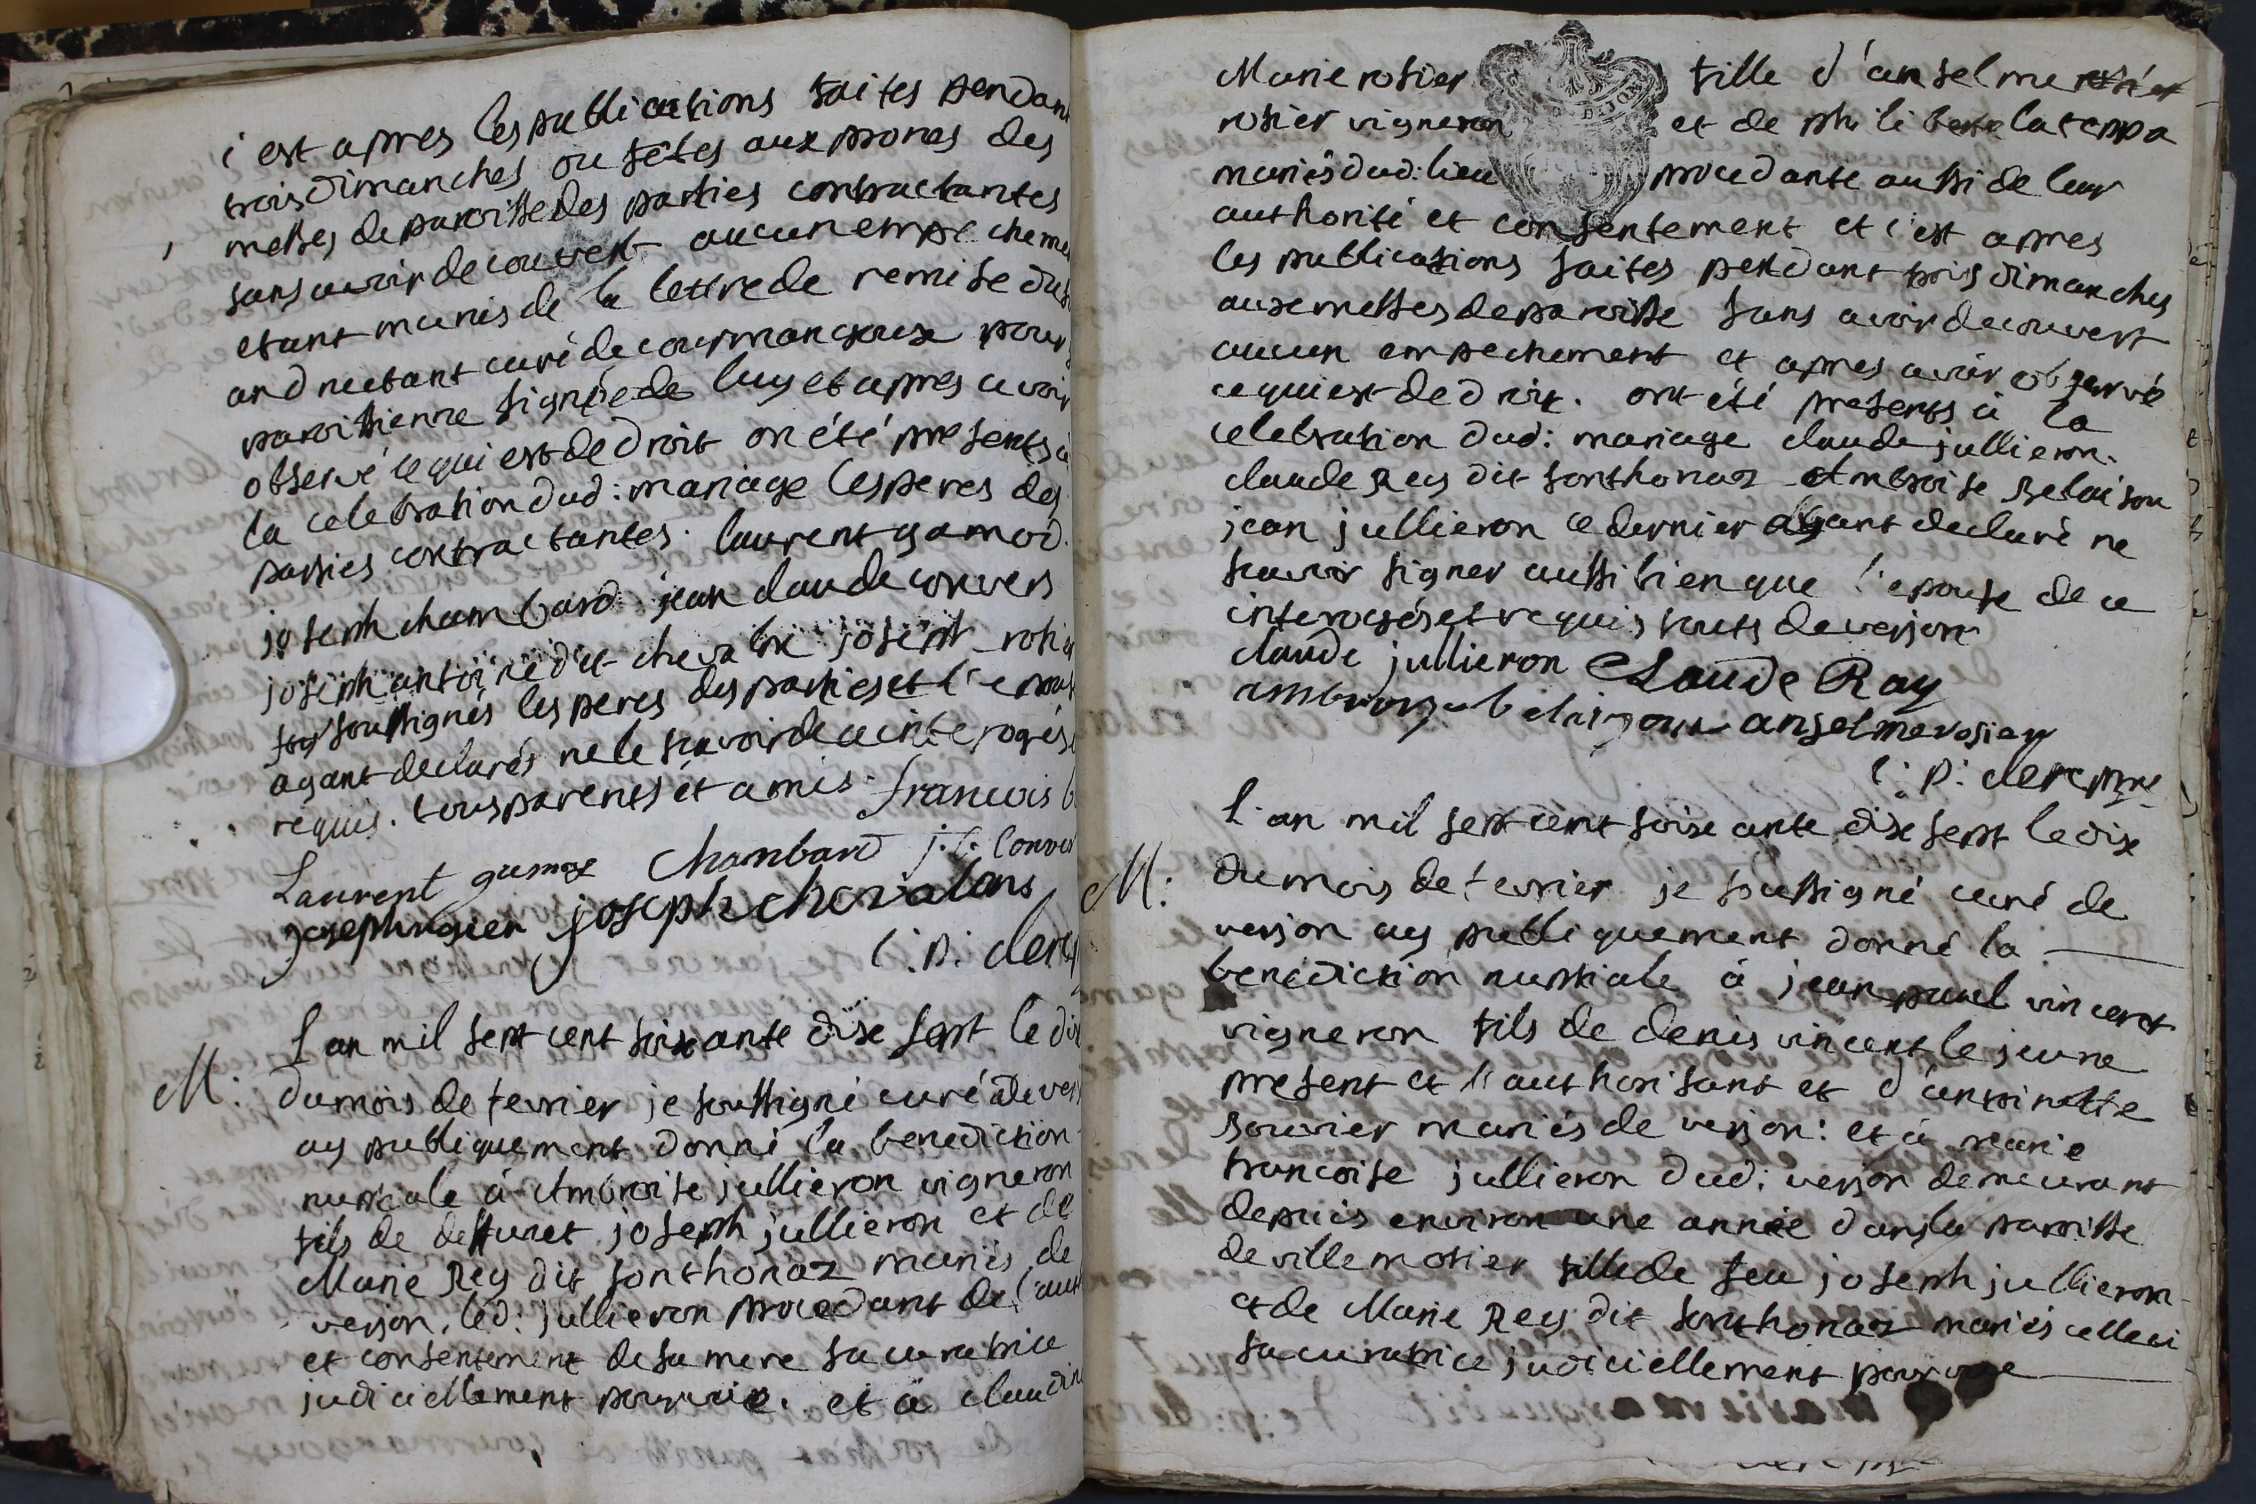 c'est apres les publications faites pendant
trois dimanches ou fêtes aux prones des
messes de paroisse des parties contractantes
sans avoir decouvert aucun empechemen
etant munis de la lettre de remise du s
and nectant curé de courmangoux pour
paroissienne signée de luy et apres avoir
observé ce qui est de droit on été presents à
la celebration dud: mariage les peres des
parties contractantes. laurent gamod.
joseph chambard. jean claude convers
joseph antoine dit chevalre joseph rosier
soussignés les peres des parties et l'epouse
ayant declarés ne le scavoir de ce interogés
requis. tous parents et amis. francois b
Laurent gamox Chambard j. c. Conver
joseph rosier joseph chevalons
c: p: dere
L'an mil sept cent soixante dixe sept le dix
M: du mois de fevrier je soussigné curé de ver
ay publiquement donné la benediction
nuptiale à Ambroise jullieron vigneron
fils de deffunct joseph jullieron et de
Marie Rey dit sonthonaz mariés de
verjon, led: jullieron procedant de l'auth
et consentement de sa mere sa curatrice
judiciellement pourvue. et à claudine
Marie rosier fille d'anselme rosier
rosier vigneron et de philiberte lateppa
mariés dud: lieu procedante aussi de leur
authorité et consentement et c'est apres
les publications faites pendant trois dimanches
aux messes de paroisse sans avoir decouvert
aucun empechement et apres avoir observé
ce qui est de droit. ont été presents à la
celebration dud: mariage claude jullieron.
claude Rey dit sonthonaz Ambroise belaison
jean jullieron ce dernier ayant declaré ne
scavoir signer aussi bien que l'epouse de ce
interogés et requis touts de verjon
claude jullieron Claude Ray
ambroise belaison anselme rosier
c: p: derepne
L'an mil sept cent soixante dix sept le dix
M: du mois de fevrier je soussigné curé de
verjon ay publiquement donné la
benediction nuptiale à jean paul vincent
vigneron fils de denis vincent le jeune
present et l'authorisant et d'anthinette
bouvier mariés de verjon: et à marie
francoise jullieron dud: verjon demeurant
depuis environ une année dans la paroisse
de villemotier fille de feu joseph jullieron
et de Marie Rey dit sonthonaz mariés celleci
sa curatrice judiciellement pourvue